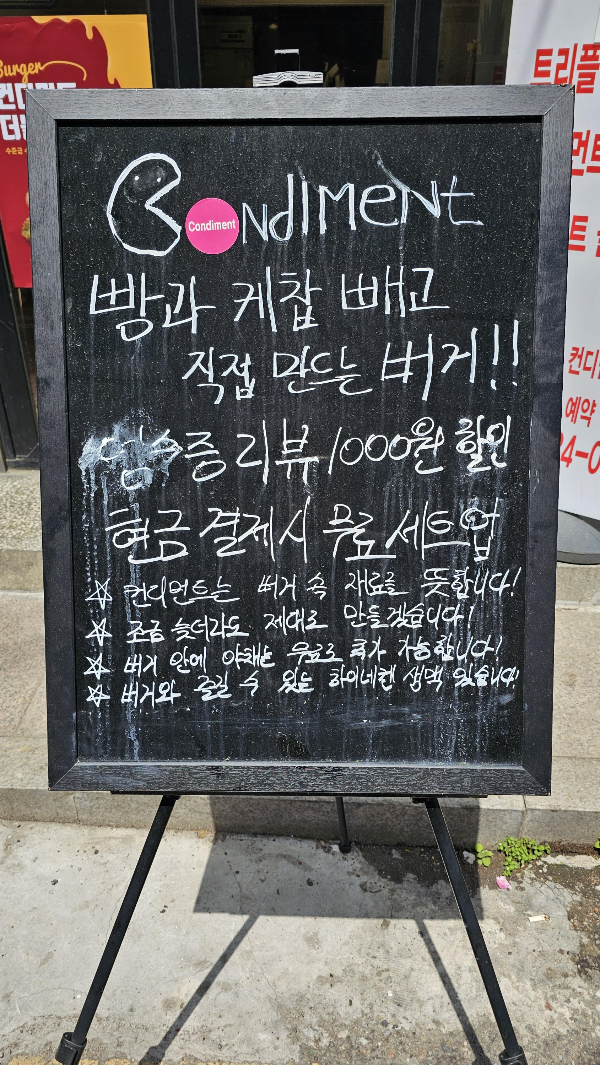 Burger
컨디먼트
더블
트리플
먼트
트
CONdIMeNt
Condiment
빵과 케찹 빼고
직접 만드는 버거!!
영수증 리뷰 1000원 할인
현금 결제시 무료 세트업
☆ 컨디먼트는 버거 속 재료를 뜻합니다!
☆ 조금 늦더라도 제대로 만들겠습니다!
☆ 버거 안에 야채는 무료로 추가 가능합니다!
☆ 버거와 즐길 수 있는 하이네켄 생맥 있습니다!
컨디
예약
4-0